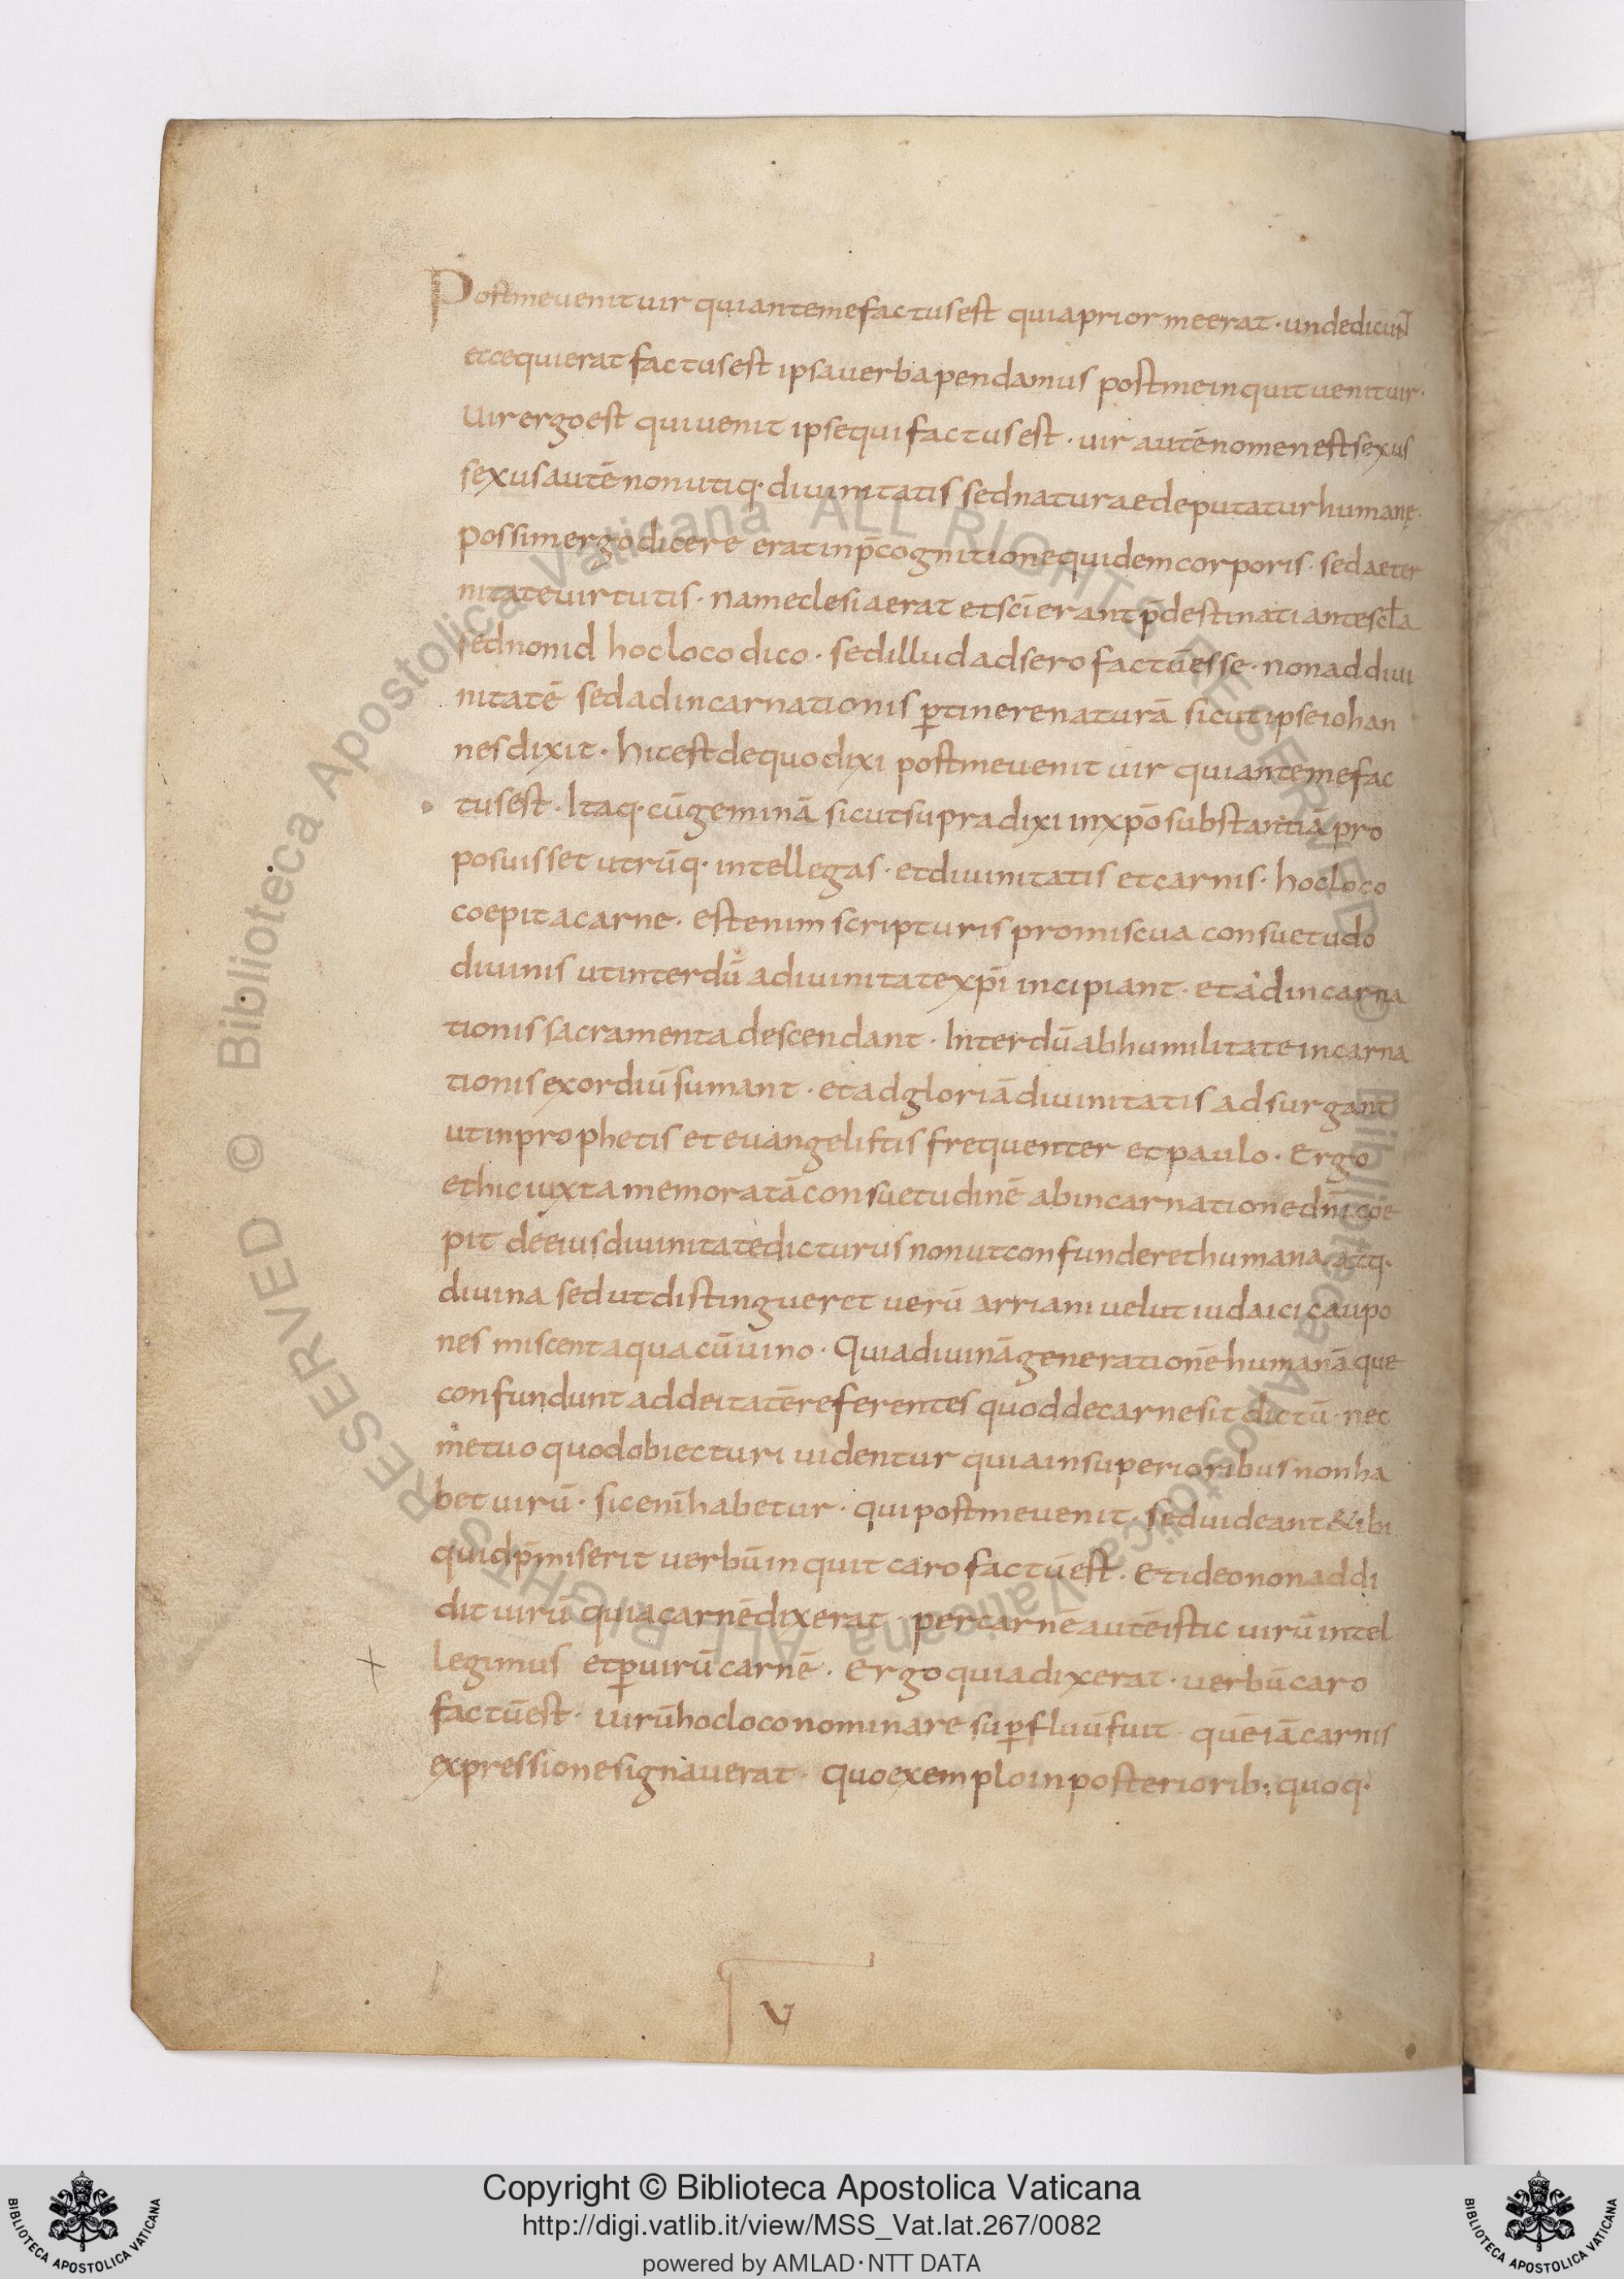 Postmeuenituir quiantemefactusest quiapriormeerat · undedicun̄t
eccequierat factusest ipsauerbapendamus postmeinquit uenituir·
Uirergoest quiuenit ipsequifactusest · uir autē nomenestsexus
sexusautē nonutiq· diuinitatis sednaturaedeputaturhumanę·
Possimergodicere eratinp̄cognitionequidemcorporis · sedaeter
nitateuirtutis · nameclesiaerat etsc̄ierant p̄destinati antesc̄la
sednonid hocloco dico · sedilludadsero factūesse · nonaddiui
nitatē sedadincarnationis ꝑtinerenaturā sicutipseiohan
nesdixit · hicestdequodixi postmeuenit uir quiantemefac
tusest · Itaq· cūgeminā sicutsupradixi inxp̄osubstantiā pro
posuisset utrūq· intellegas · etdiuinitatis etcarnis · hocloco
coepitacarne · estenim scripturis promiscua consuetudo
diuinis utinterdū adiuinitatexp̄i incipiant · etadincarna
tionis sacramenta descendant · Interdūabhumilitateincarna
tionisexordiūsumant · etadgloriādiuinitatis adsurgant
utinprophetis eteuangelistis frequenter etpaulo · Ergo
ethiciuxtamemoratāconsuetudinē abincarnationedn̄icoe
pit deeiusdiuinitatedicturus nonutconfunderethumana atq·
diuina sedutdistingueret uerū arriani uelut iudaici caupo
nes miscentaquacūuino · Quiadiuināgenerationēhumanāque
confundunt addeitatēreferentes quoddecarnesitdictū · nec
metuo quodobiecturi uidentur quiainsuperioribusnonha
betuirū · sicenīhabetur · quipostmeuenit · seduideant &ibi
quidp̄miserit uerbūinquit carofactūest · Etideononaddi
dit uirū quiacarnēdixerat · percarnēautēistic uirūintel
legimus etꝑuirūcarnē · Ergoquiadixerat · uerbūcaro
factūest · uirūhocloconominare suꝑfluūfuit · quēiācarnis
expressionesignauerat · quoexemploinposteriorib: quoq·
V
© Biblioteca Apostolica Vaticana ALL RIGHTS RESERVED © Biblioteca Apostolica Vaticana ALL RIGHTS RESERVED
BIBLIOTECA APOSTOLICA VATICANA
Copyright © Biblioteca Apostolica Vaticana
http://digi.vatlib.it/view/MSS_Vat.lat.267/0082
powered by AMLAD · NTT DATA
BIBLIOTECA APOSTOLICA VATICANA